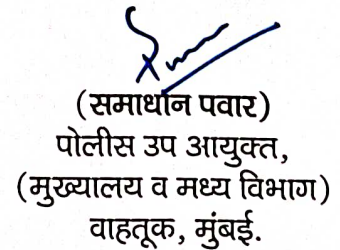 (समाधान पवार)
पोलीस उप आयुक्त,
(मुख्यालय व मध्य विभाग)
वाहतूक, मुंबई.